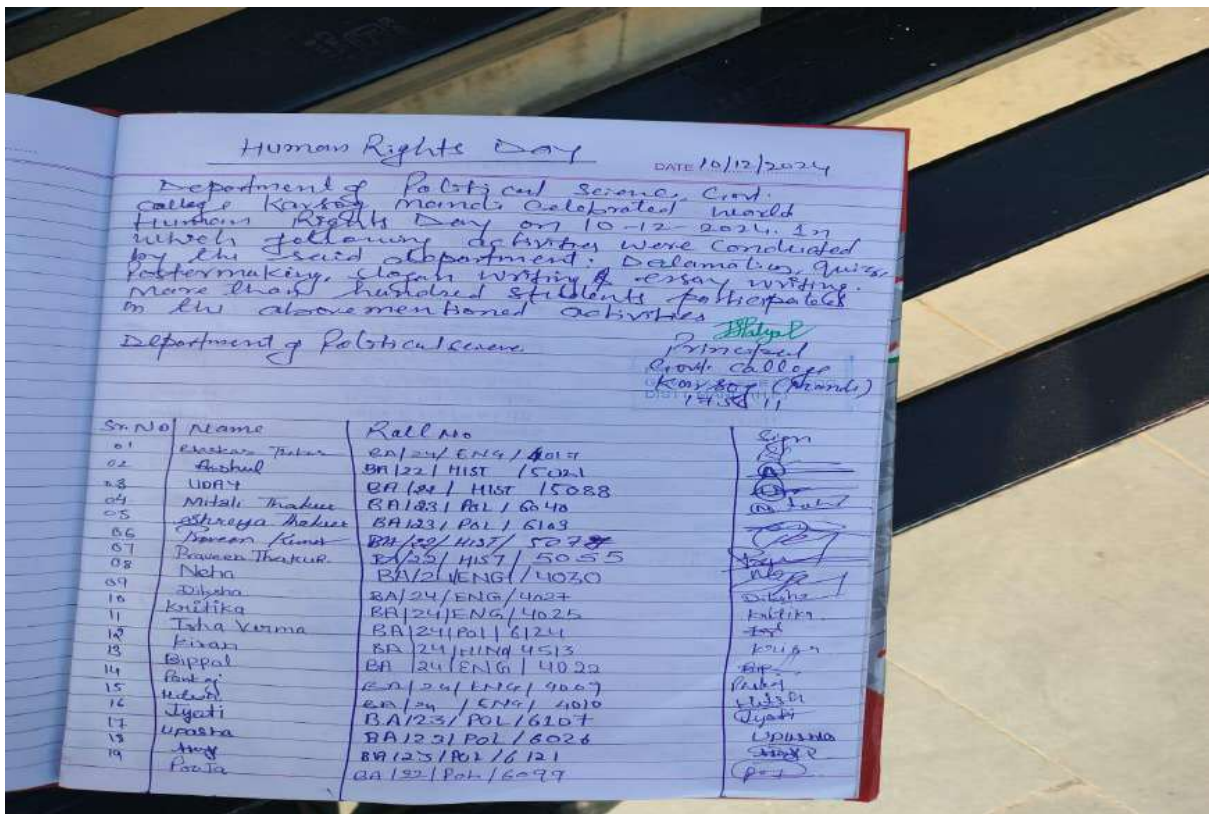 Human Rights Day
DATE 10/12/2024
Department of Political Science, Govt.
college Karsog Mandi Celebrated world
Human Rights Day on 10-12-2024. In
which following activities were conducted
by the said department. Dalamation, Quizz,
Postermaking, slogan writing & essay writing.
More than hundred students participated
in the abovementioned activities
Department of Political science
Principal
Govt. College
Karsog (Mandi)
Sr. No Name Roll No Sign
01 Thakur BA/24/ENG/4017
02 Anshul BA/22/HIST/5021
03 UDAY BA/22/HIST/5088
04 Mitali Thakur BA/23/POL/6040
05 Shreya Thakur BA/23/POL/6103
06 Praveen Kumar BA/22/HIST/5078
07 Praveen Thakur BA/22/HIST/5055
08 Neha BA/2/ENG/4030 Neha
09 Diksha BA/24/ENG/4027 Diksha
10 Kritika BA/24/ENG/4025 Kritika
11 Isha Verma BA/24/POL/6124
12 Kiran BA/24/HIND/4513
13 Bippal BA/24/ENG/4022
14 Pankaj BA/24/ENG/4009 Pankaj
15 BA/24/ENG/4010
16 Jyoti BA/23/POL/6107 Jyoti
17 Upasna BA/23/POL/6026 Upasna
18 BA/23/POL/6121
19 Pooja BA/22/POL/6099